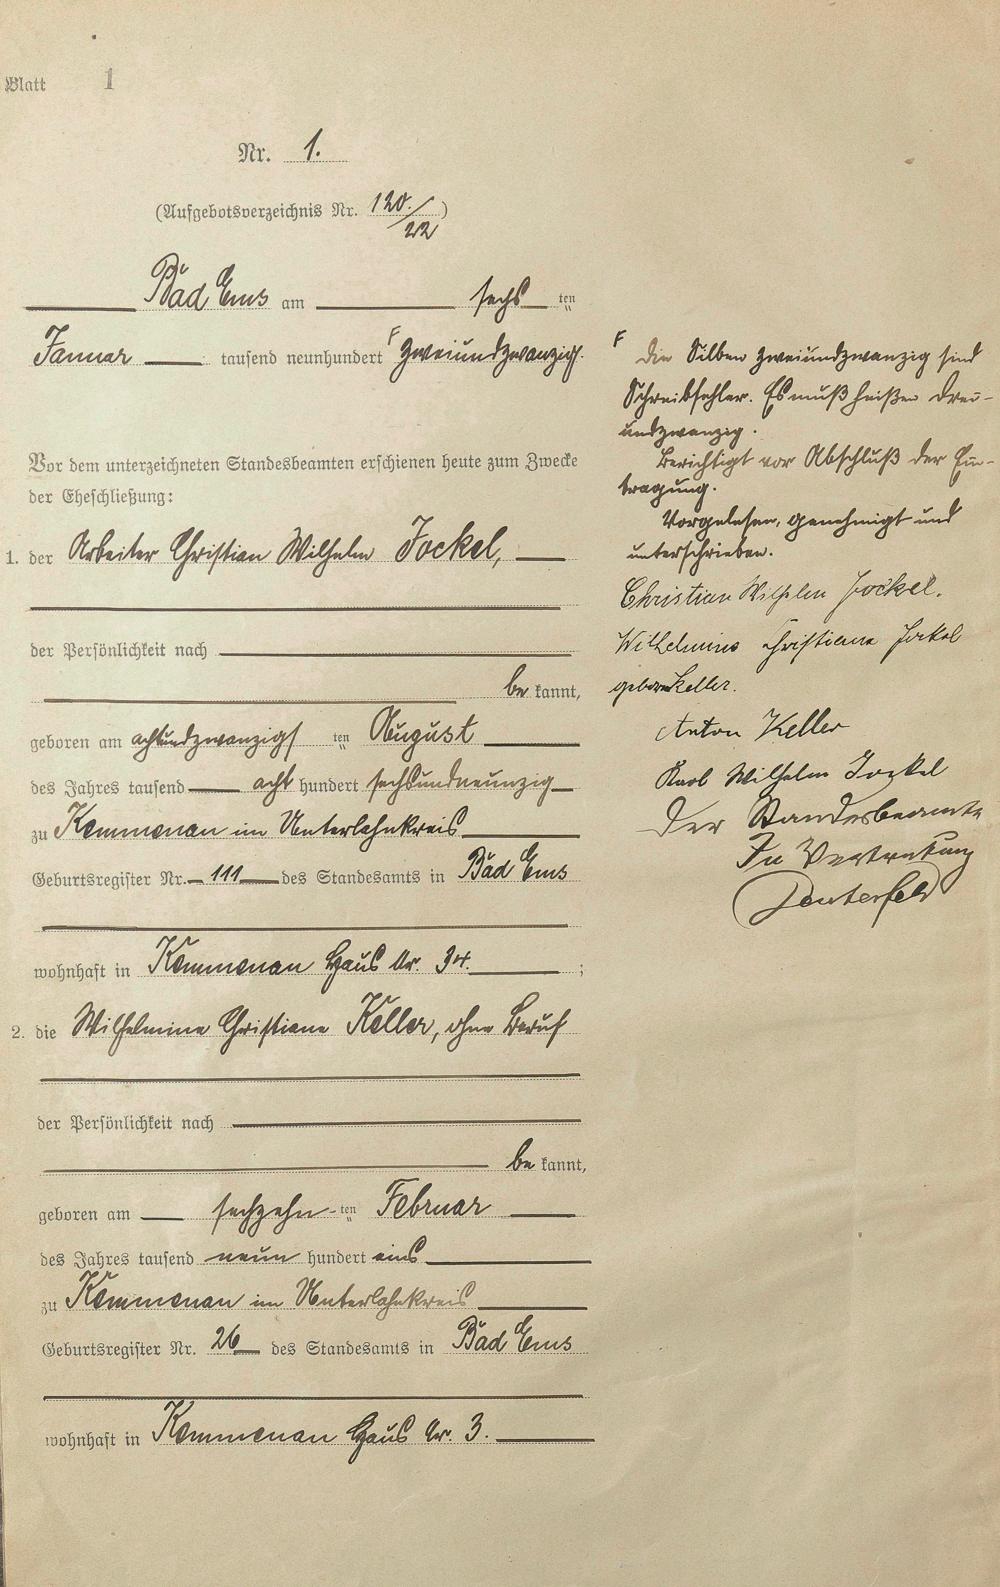 Blatt 1
Nr. 1.
(Aufgebotsverzeichnis Nr. 120./22)
Bad Ems am sechs ten
Januar tausend neunhundert F zweiundzwanzig.
Vor dem unterzeichneten Standesbeamten erschienen heute zum Zwecke
der Eheschließung:
1. der Arbeiter Christian Wilhelm Jockel,
der Persönlichkeit nach
be kannt,
geboren am achtundzwanzigs ten August
des Jahres tausend acht hundert sechsundneunzig
zu Kemmenau im Unterlahnkreis
Geburtsregister Nr. 111 des Standesamts in Bad Ems
wohnhaft in Kemmenau Haus Nr. 34. ;
2. die Wilhelmine Christiane Keller, ohne Beruf
der Persönlichkeit nach
be kannt,
geboren am sechzehn ten Februar
des Jahres tausend neun hundert eins
zu Kemmenau im Unterlahnkreis
Geburtsregister Nr. 26 des Standesamts in Bad Ems
wohnhaft in Kemmenau Haus Nr. 3.
F Die Silben zweiundzwanzig sind
Schreibfehler. Es muß heißen drei-
undzwanzig.
Berichtigt vor Abschluß der Ein-
tragung.
Vorgelesen, genehmigt und
unterschrieben.
Christian Wilhelm Jockel.
Wilhelmine Christiane Jockel
geborn Keller.
Anton Keller
Karl Wilhelm Jockel
Der Standesbeamte
In Vertretung